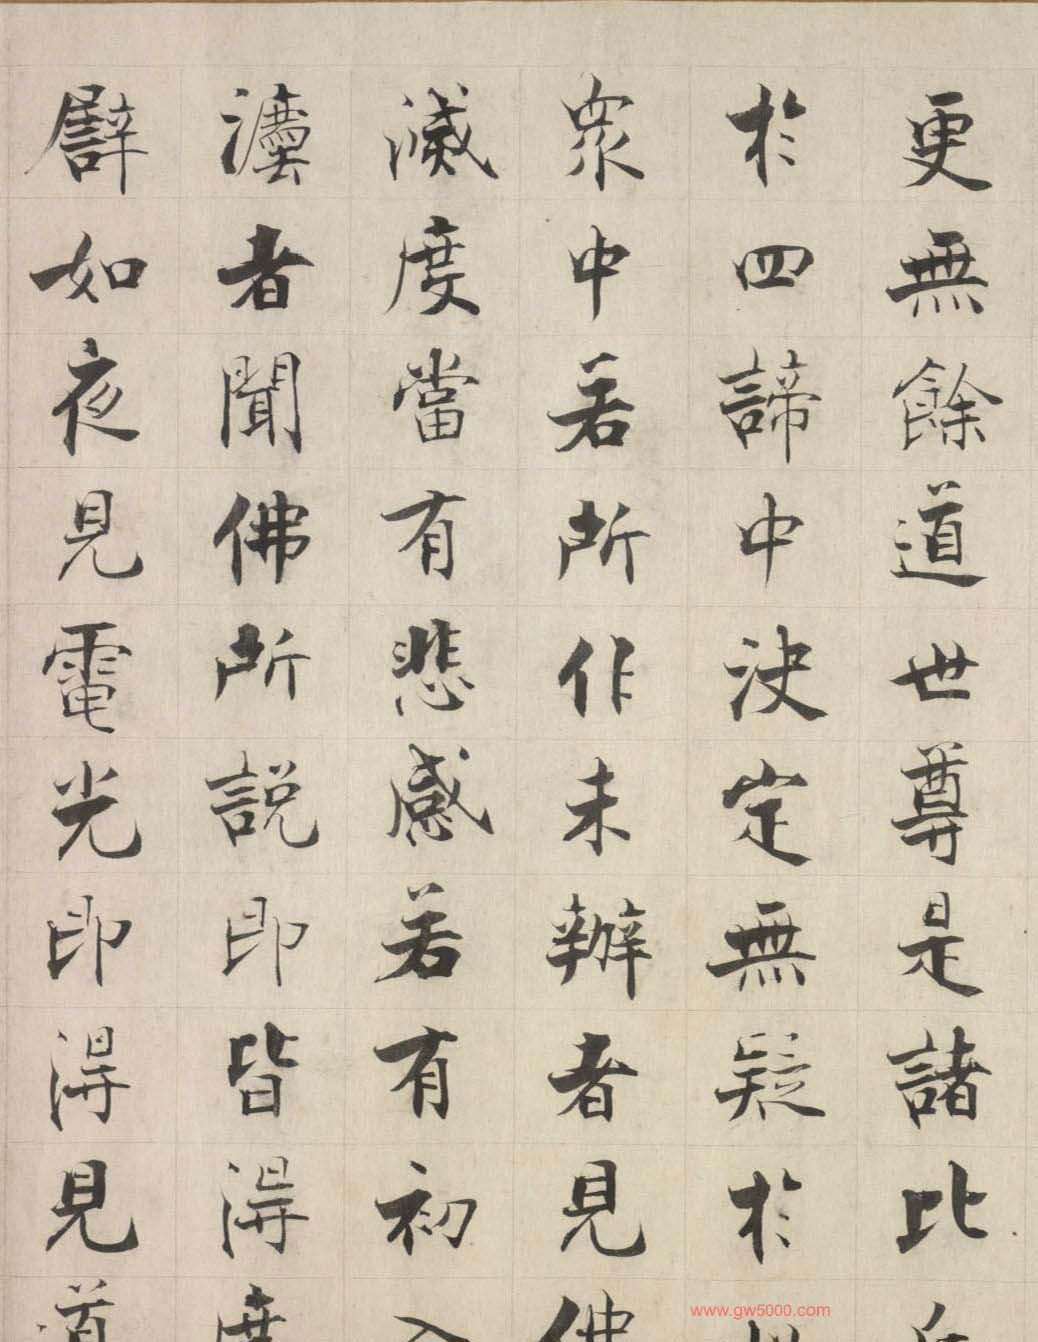 更無餘道世尊是諸比
於四諦中決定無疑於
衆中若所作未辦者見佛
滅度當有悲感若有初入
法者聞佛所說即皆得度
譬如夜見電光即得見道
www.gw5000.com